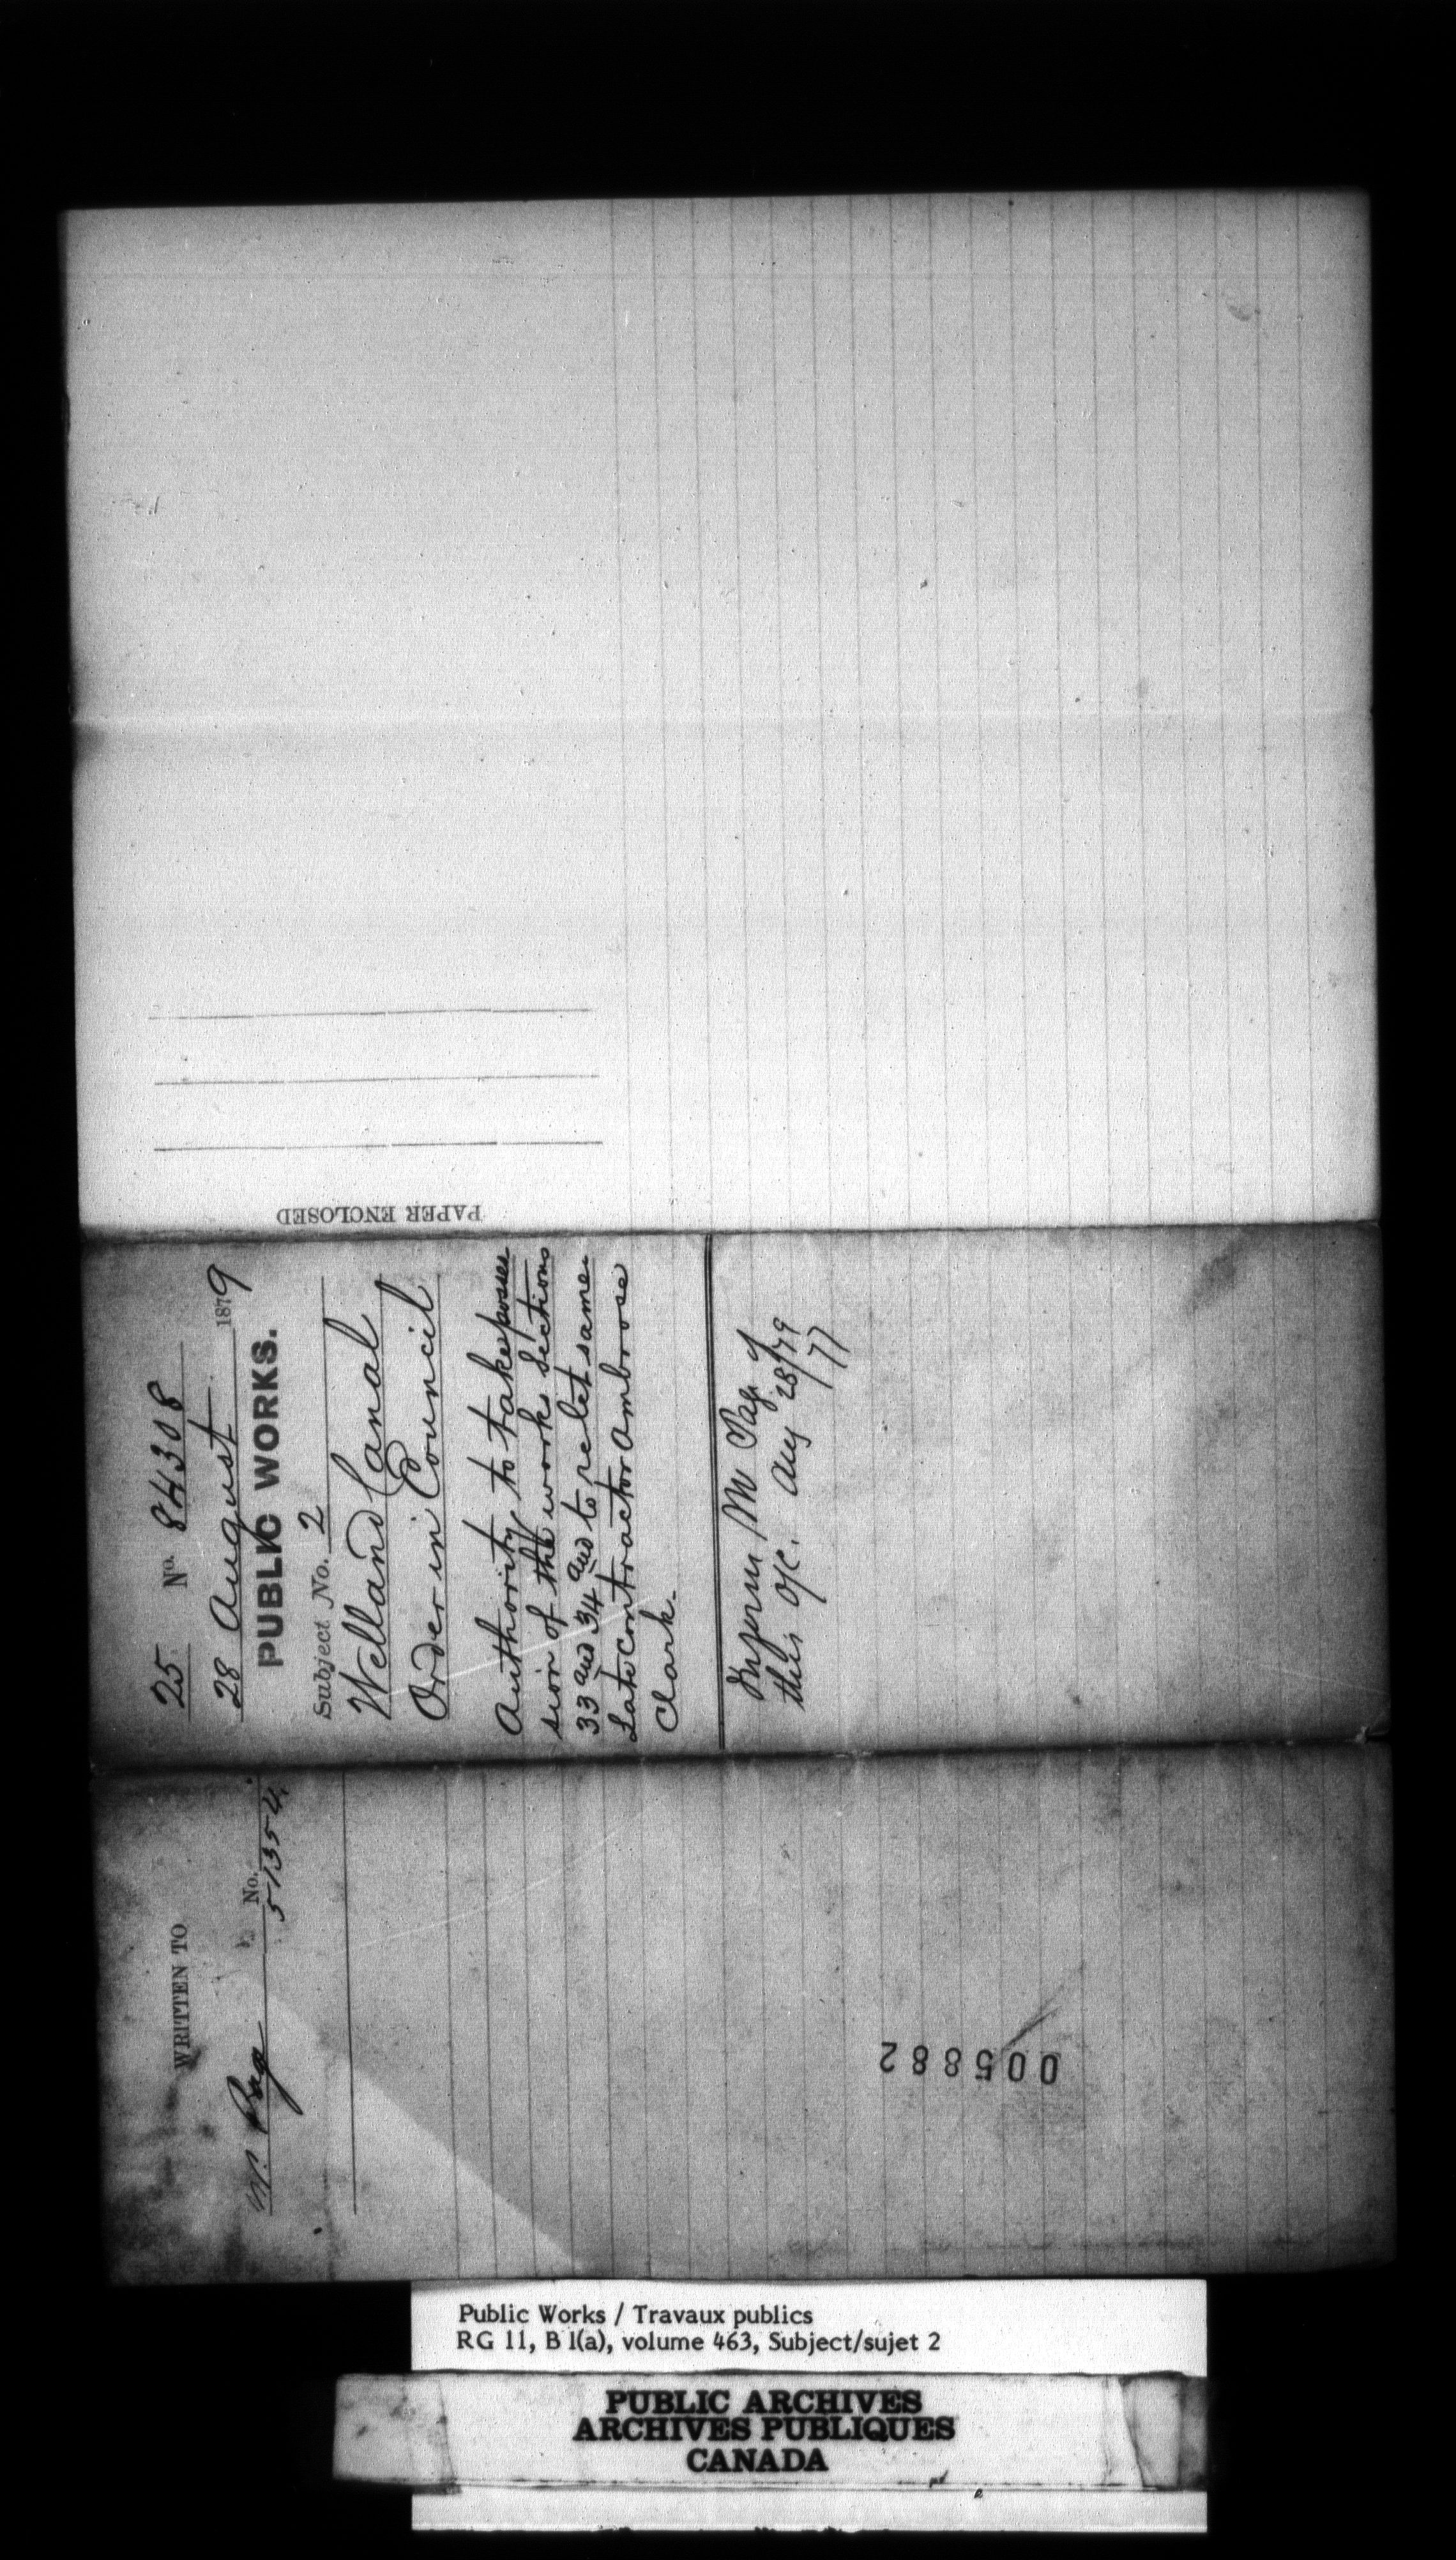 PAPER ENCLOSED
25 No. 84308
28 August 1879
PUBLIC WORKS.
Subject No. 2
Welland Canal
Order in Council
Authority to take posses
sion of the works Sections
33 and 34 and to relet same
Late contractor Ambrose
Clark.
Inform Mr Page of
this O/C. Aug 28/79
WRITTEN TO
Mr. Page No. 51354
005882
Public Works / Travaux publics
RG 11, B 1(a), volume 463, Subject/sujet 2
PUBLIC ARCHIVES
ARCHIVES PUBLIQUES
CANADA